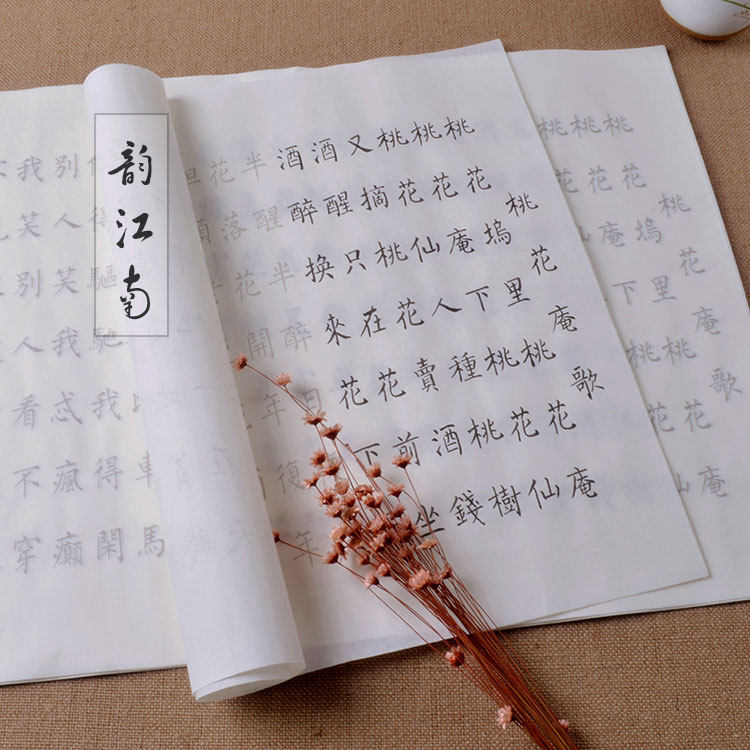 韵江南
桃花庵歌
桃花塢里桃花庵
桃花庵下桃花仙
桃花仙人種桃樹
又摘桃花賣酒錢
酒醒只在花前坐
酒醉换來花下
半醒半醉日復年
花落花開年年
車馬
得驅馳我得閑
別人笑我忒瘋癲
我笑別人看不穿
桃花庵歌
桃花塢里桃花庵
桃花庵下桃花
桃花